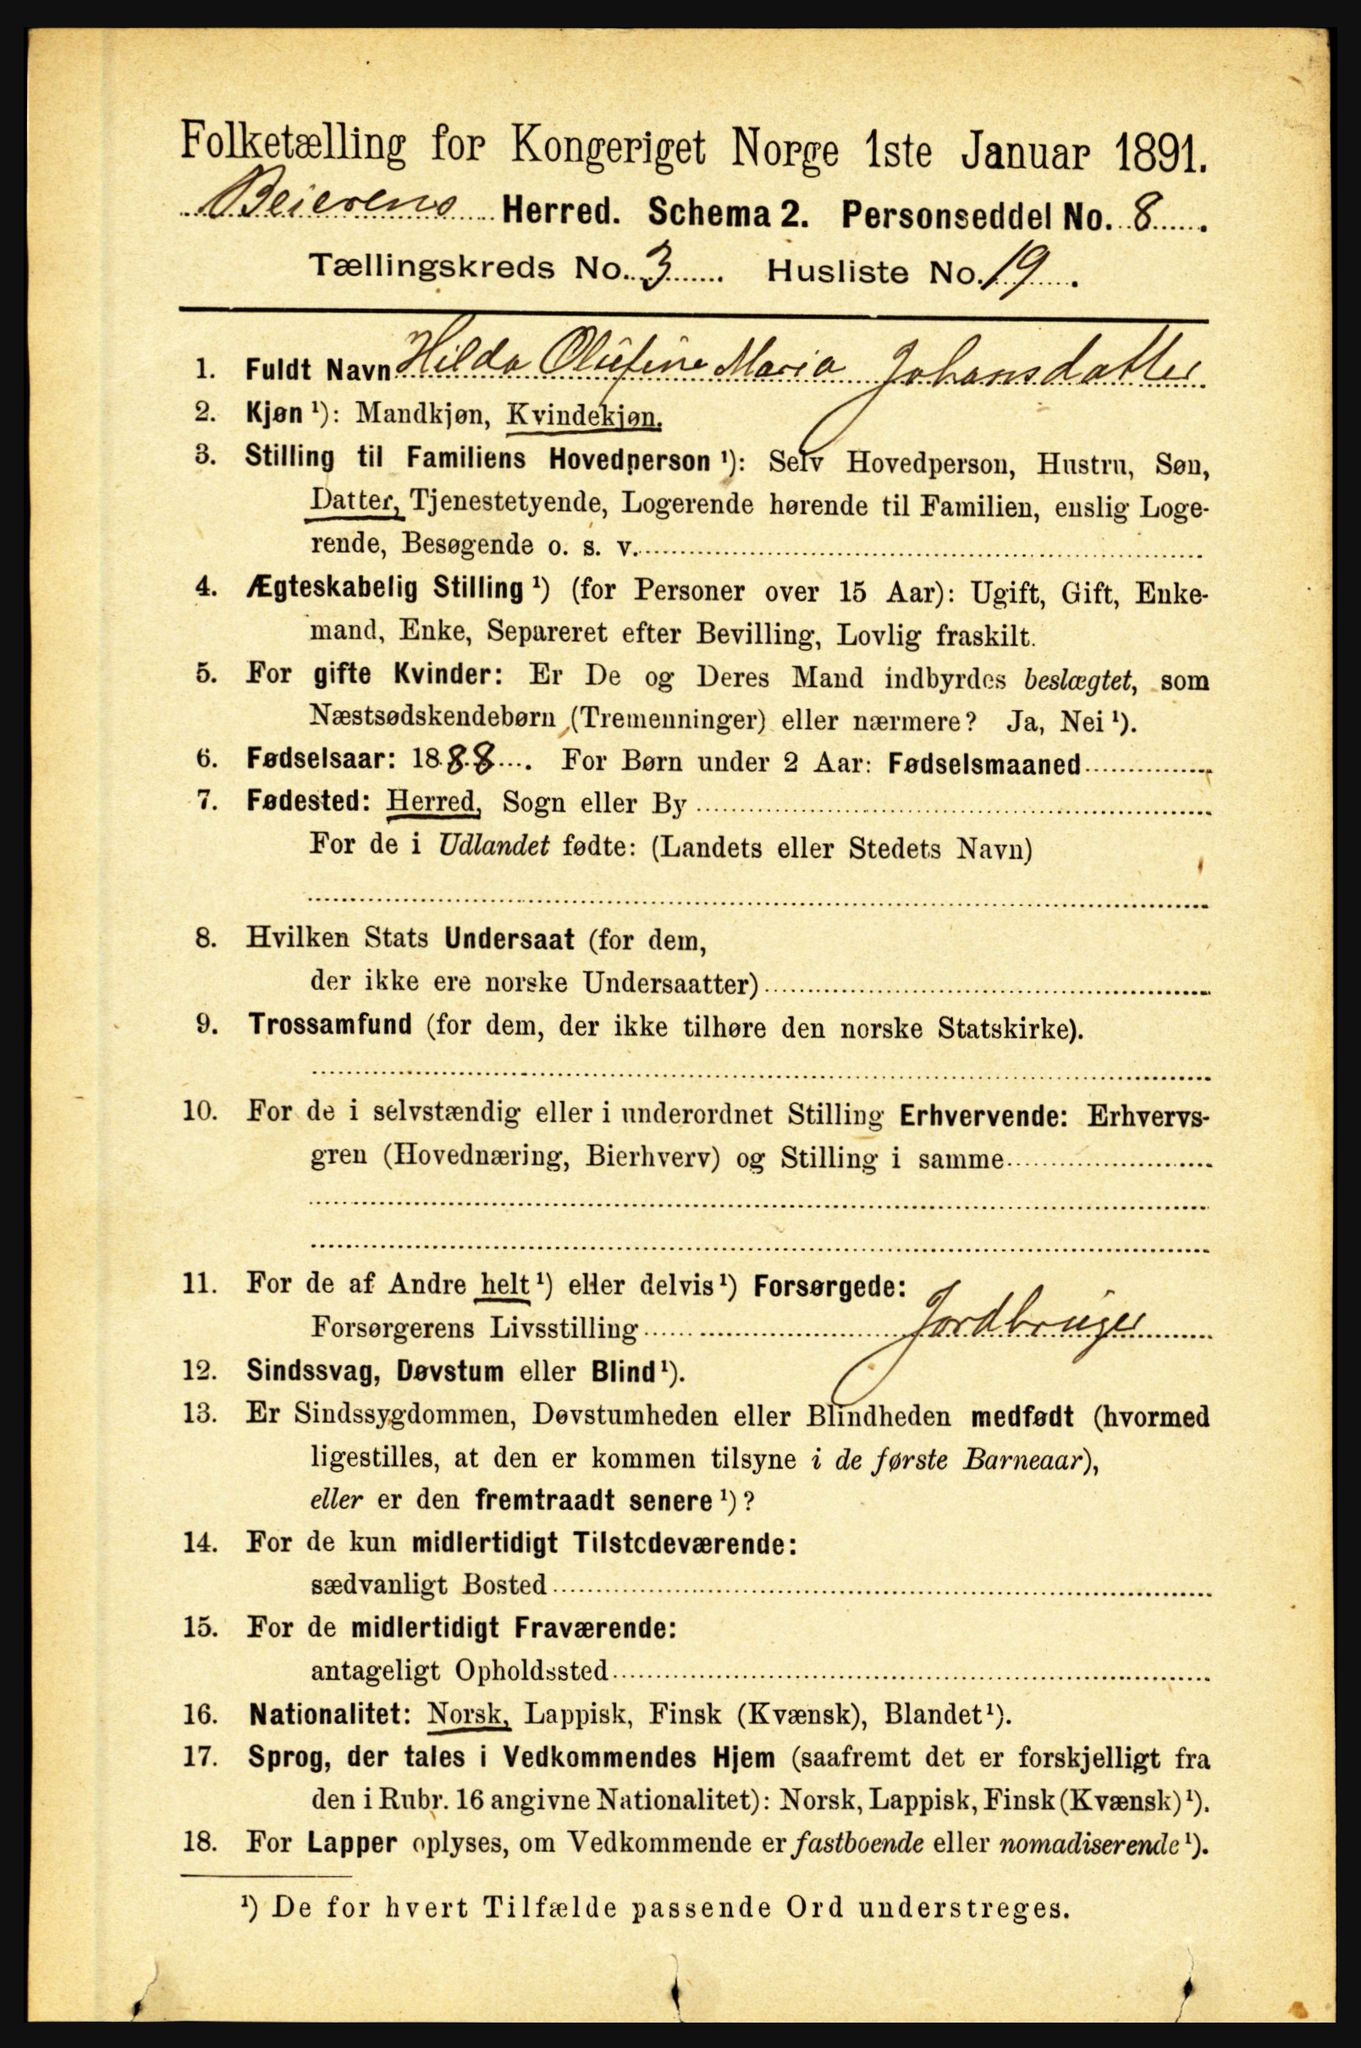 Folketælling for Kongeriget Norge 1ste Januar 1891.
Beierens Herred. Schema 2. Personseddel No. 8.
Tællingskreds No. 3 Husliste No. 19.
1. Fuldt Navn Hilda Olufine Maria Johansdatter
2. Kjøn ¹): Mandkjøn, Kvindekjøn.
3. Stilling til Familiens Hovedperson ¹): Selv Hovedperson, Hustru, Søn,
Datter, Tjenestetyende, Logerende hørende til Familien, enslig Loge-
rende, Besøgende o. s. v.
4. Ægteskabelig Stilling ¹) (for Personer over 15 Aar): Ugift, Gift, Enke-
mand, Enke, Separeret efter Bevilling, Lovlig fraskilt.
5. For gifte Kvinder: Er De og Deres Mand indbyrdes beslægtet, som
Næstsødskendebørn (Tremenninger) eller nærmere? Ja, Nei ¹).
6. Fødselsaar: 1888. For Børn under 2 Aar: Fødselsmaaned
7. Fødested: Herred, Sogn eller By
For de i Udlandet fødte: (Landets eller Stedets Navn)
8. Hvilken Stats Undersaat (for dem,
der ikke ere norske Undersaatter)
9. Trossamfund (for dem, der ikke tilhøre den norske Statskirke).
10. For de i selvstændig eller i underordnet Stilling Erhvervende: Erhvervs-
gren (Hovednæring, Bierhverv) og Stilling i samme
11. For de af Andre helt ¹) eller delvis ¹) Forsørgede:
Forsørgerens Livsstilling Jordbruger
12. Sindssvag, Døvstum eller Blind ¹).
13. Er Sindssygdommen, Døvstumheden eller Blindheden medfødt (hvormed
ligestilles, at den er kommen tilsyne i de første Barneaar),
eller er den fremtraadt senere ¹)?
14. For de kun midlertidigt Tilstedeværende:
sædvanligt Bosted
15. For de midlertidigt Fraværende:
antageligt Opholdssted
16. Nationalitet: Norsk, Lappisk, Finsk (Kvænsk), Blandet ¹).
17. Sprog, der tales i Vedkommendes Hjem (saafremt det er forskjelligt fra
den i Rubr. 16 angivne Nationalitet): Norsk, Lappisk, Finsk (Kvænsk) ¹).
18. For Lapper oplyses, om Vedkommende er fastboende eller nomadiserende ¹).
¹) De for hvert Tilfælde passende Ord understreges.